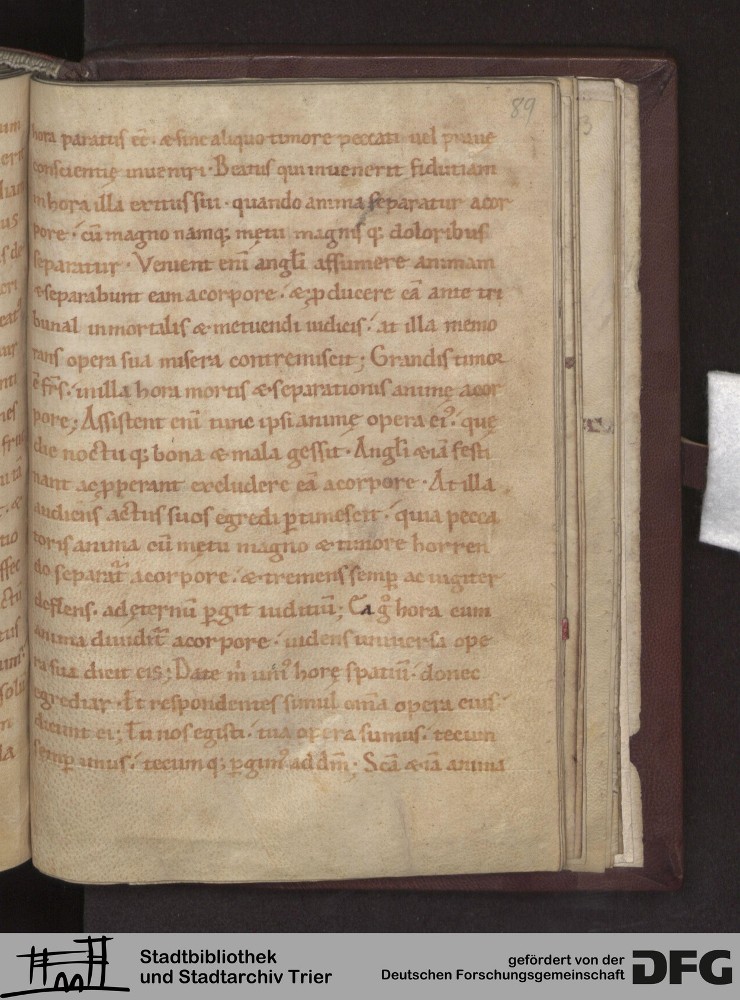 89
hora paratus eē. & sine aliquo timore peccati uel praue
conscientię inueniri. Beatus qui inuenerit fidutiam
in hora illa exitus sui. quando anima separatur a cor
pore. cū magno namq; metu magnis q; doloribus
separatur. Venient eni angli assumere animam
& separabunt eam a corpore. & p ducere eā ante tri
bunal inmortalis & metuendi iudicis. at illa memo
rans opera sua misera contremiscit; Grandis timor
ē frs. in illa hora mortis & separationis animę a cor
pore; Assistent eni tunc ipsi animę opera ei'. quę
die noctu q; bona & mala gessit. Angli & iā festi
nant ac pperant excludere eā a corpore. At illa
audiens actus suos egredi ptimescit. quia pecca
toris anima cū metu magno & timore horren
do separat a corpore. & tremens semp ac iugiter
deflens. ad ęternū pgit iuditiū; Ea g° hora cum
anima diuidit a corpore. uidens uniuersa ope
ra sua dicit eis; Date m uni' horę spatiū. donec
egrediar. Et respondentes simul oma opera eius
dicunt ei; Tu nos egisti. tua opera sumus. tecum
semp imus. tecum q; pgim' ad dm. Scā & iā anima
Stadtbibliothek
und Stadtarchiv Trier
gefördert von der
Deutschen Forschungsgemeinschaft
DFG